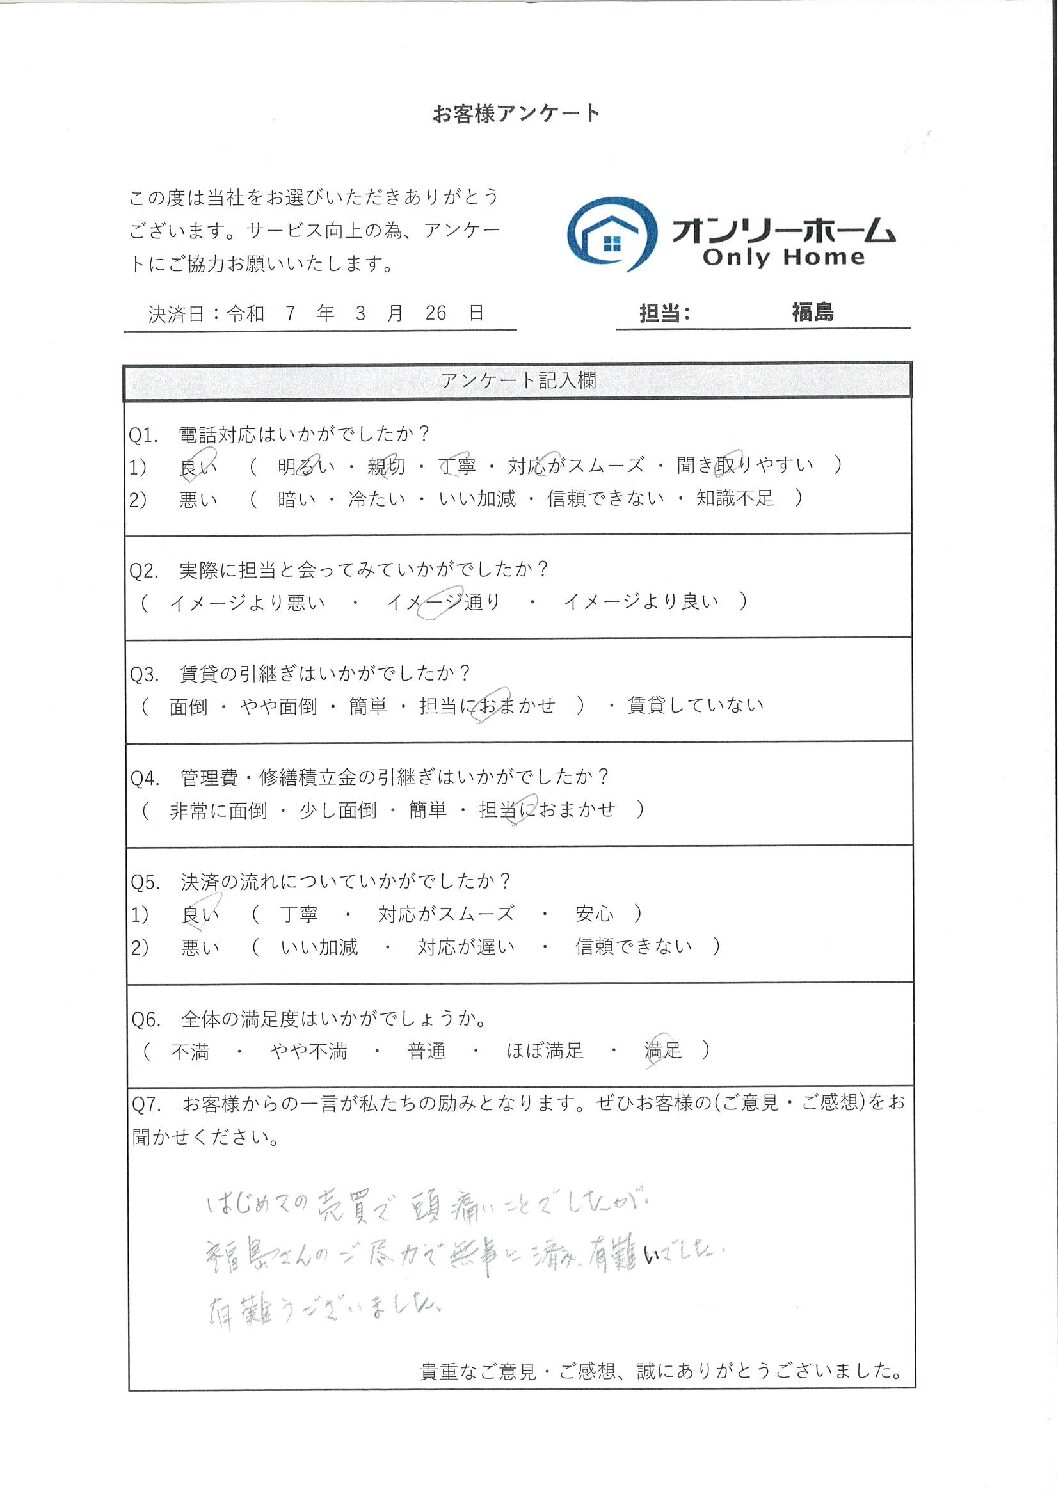 お客様アンケート
この度は当社をお選びいただきありがとう
ございます。サービス向上の為、アンケー
トにご協力お願いいたします。
オンリーホーム
Only Home
決済日：令和 7 年 3 月 26 日
担当： 福島
アンケート記入欄
Q1. 電話対応はいかがでしたか？
1) 良い （ 明るい ・ 親切 ・ 丁寧 ・ 対応がスムーズ ・ 聞き取りやすい ）
2) 悪い （ 暗い ・ 冷たい ・ いい加減 ・ 信頼できない ・ 知識不足 ）
Q2. 実際に担当と会ってみていかがでしたか？
（ イメージより悪い ・ イメージ通り ・ イメージより良い ）
Q3. 賃貸の引継ぎはいかがでしたか？
（ 面倒 ・ やや面倒 ・ 簡単 ・ 担当におまかせ ） ・ 賃貸していない
Q4. 管理費・修繕積立金の引継ぎはいかがでしたか？
（ 非常に面倒 ・ 少し面倒 ・ 簡単 ・ 担当におまかせ ）
Q5. 決済の流れについていかがでしたか？
1) 良い （ 丁寧 ・ 対応がスムーズ ・ 安心 ）
2) 悪い （ いい加減 ・ 対応が遅い ・ 信頼できない ）
Q6. 全体の満足度はいかがでしょうか。
（ 不満 ・ やや不満 ・ 普通 ・ ほぼ満足 ・ 満足 ）
Q7. お客様からの一言が私たちの励みとなります。ぜひお客様の(ご意見・ご感想)をお
聞かせください。
はじめての売買で頭痛いことでしたが、
福島さんのご尽力で無事に済み、有難いでした。
有難うございました。
貴重なご意見・ご感想、誠にありがとうございました。